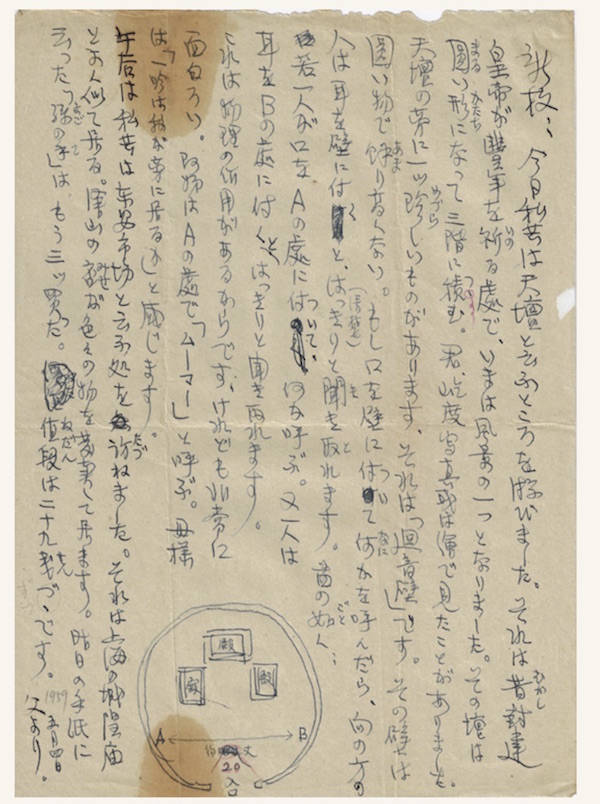 今日私共は天壇と云ふところを游びました。それは昔封建
皇帝が豊年を祈る處で、いまは風景の一つとなりました。その壇は
圓い形になって三階に積む。君、屹度写真或は画で見たことがありました。
天壇の旁に一ツ珍しいものがあります、それは「廻音壁」です。その壁は
圓い物で餘り高くない。もし口を壁に付て何かを呼んだら、向の方の
人は耳を壁に付くと、はっきりと聞き取れます。図の如く:
若一人が口をAの處には付いて、何を呼ぶ。又一人は
耳をBの處に付くとはっきりと聞き取れます。
これは物理の作用があるからです、けれども非常に
面白ろい。阿姉はAの處で「ムーマー」と呼ぶ。母様
は「一吟は我が旁に居るか」と感じます。
午后は私共は东安市场と云ふ処を訪ねました。それは上海の城隍庙
とよく似て居る。 色々の物を 居ます。昨日の手紙に
云った「孫の手」は、もう三ッ買った。値段は二十九銭づゝです。
1959 五月四日
父より。
むかし
いの
まる かたち
つ
めづら
あま
つい なに
く
き と
ごと
ついて
と
たづ
まご て
ねだん
せん
殿
殿
殿
A
B
20
丈
入口